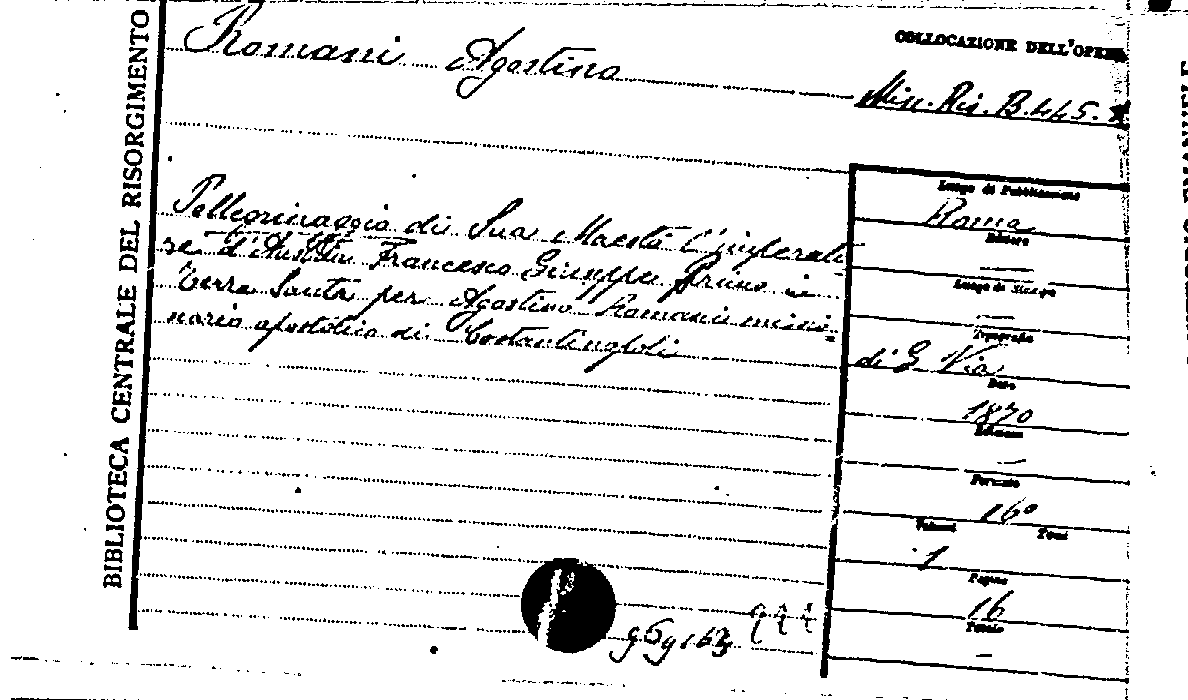 BIBLIOTECA CENTRALE DEL RISORGIMENTO
Romani Agostino
COLLOCAZIONE DELL'OPERA
Misc. Ris. B. 445.
Pellegrinaggio di Sua Maestà l'imperato
re d'Austria Francesco Giuseppe primo in
Terra Santa per Agostino Romani missio
nario apostolico di Costantinopoli
Luogo di Pubblicazione
Roma
Editore
—
Luogo di Stampa
—
Tipografia
di G. Via
Data
1870
Edizione
—
Formato
16°
Volumi Tomi
1
Pagine
16
—